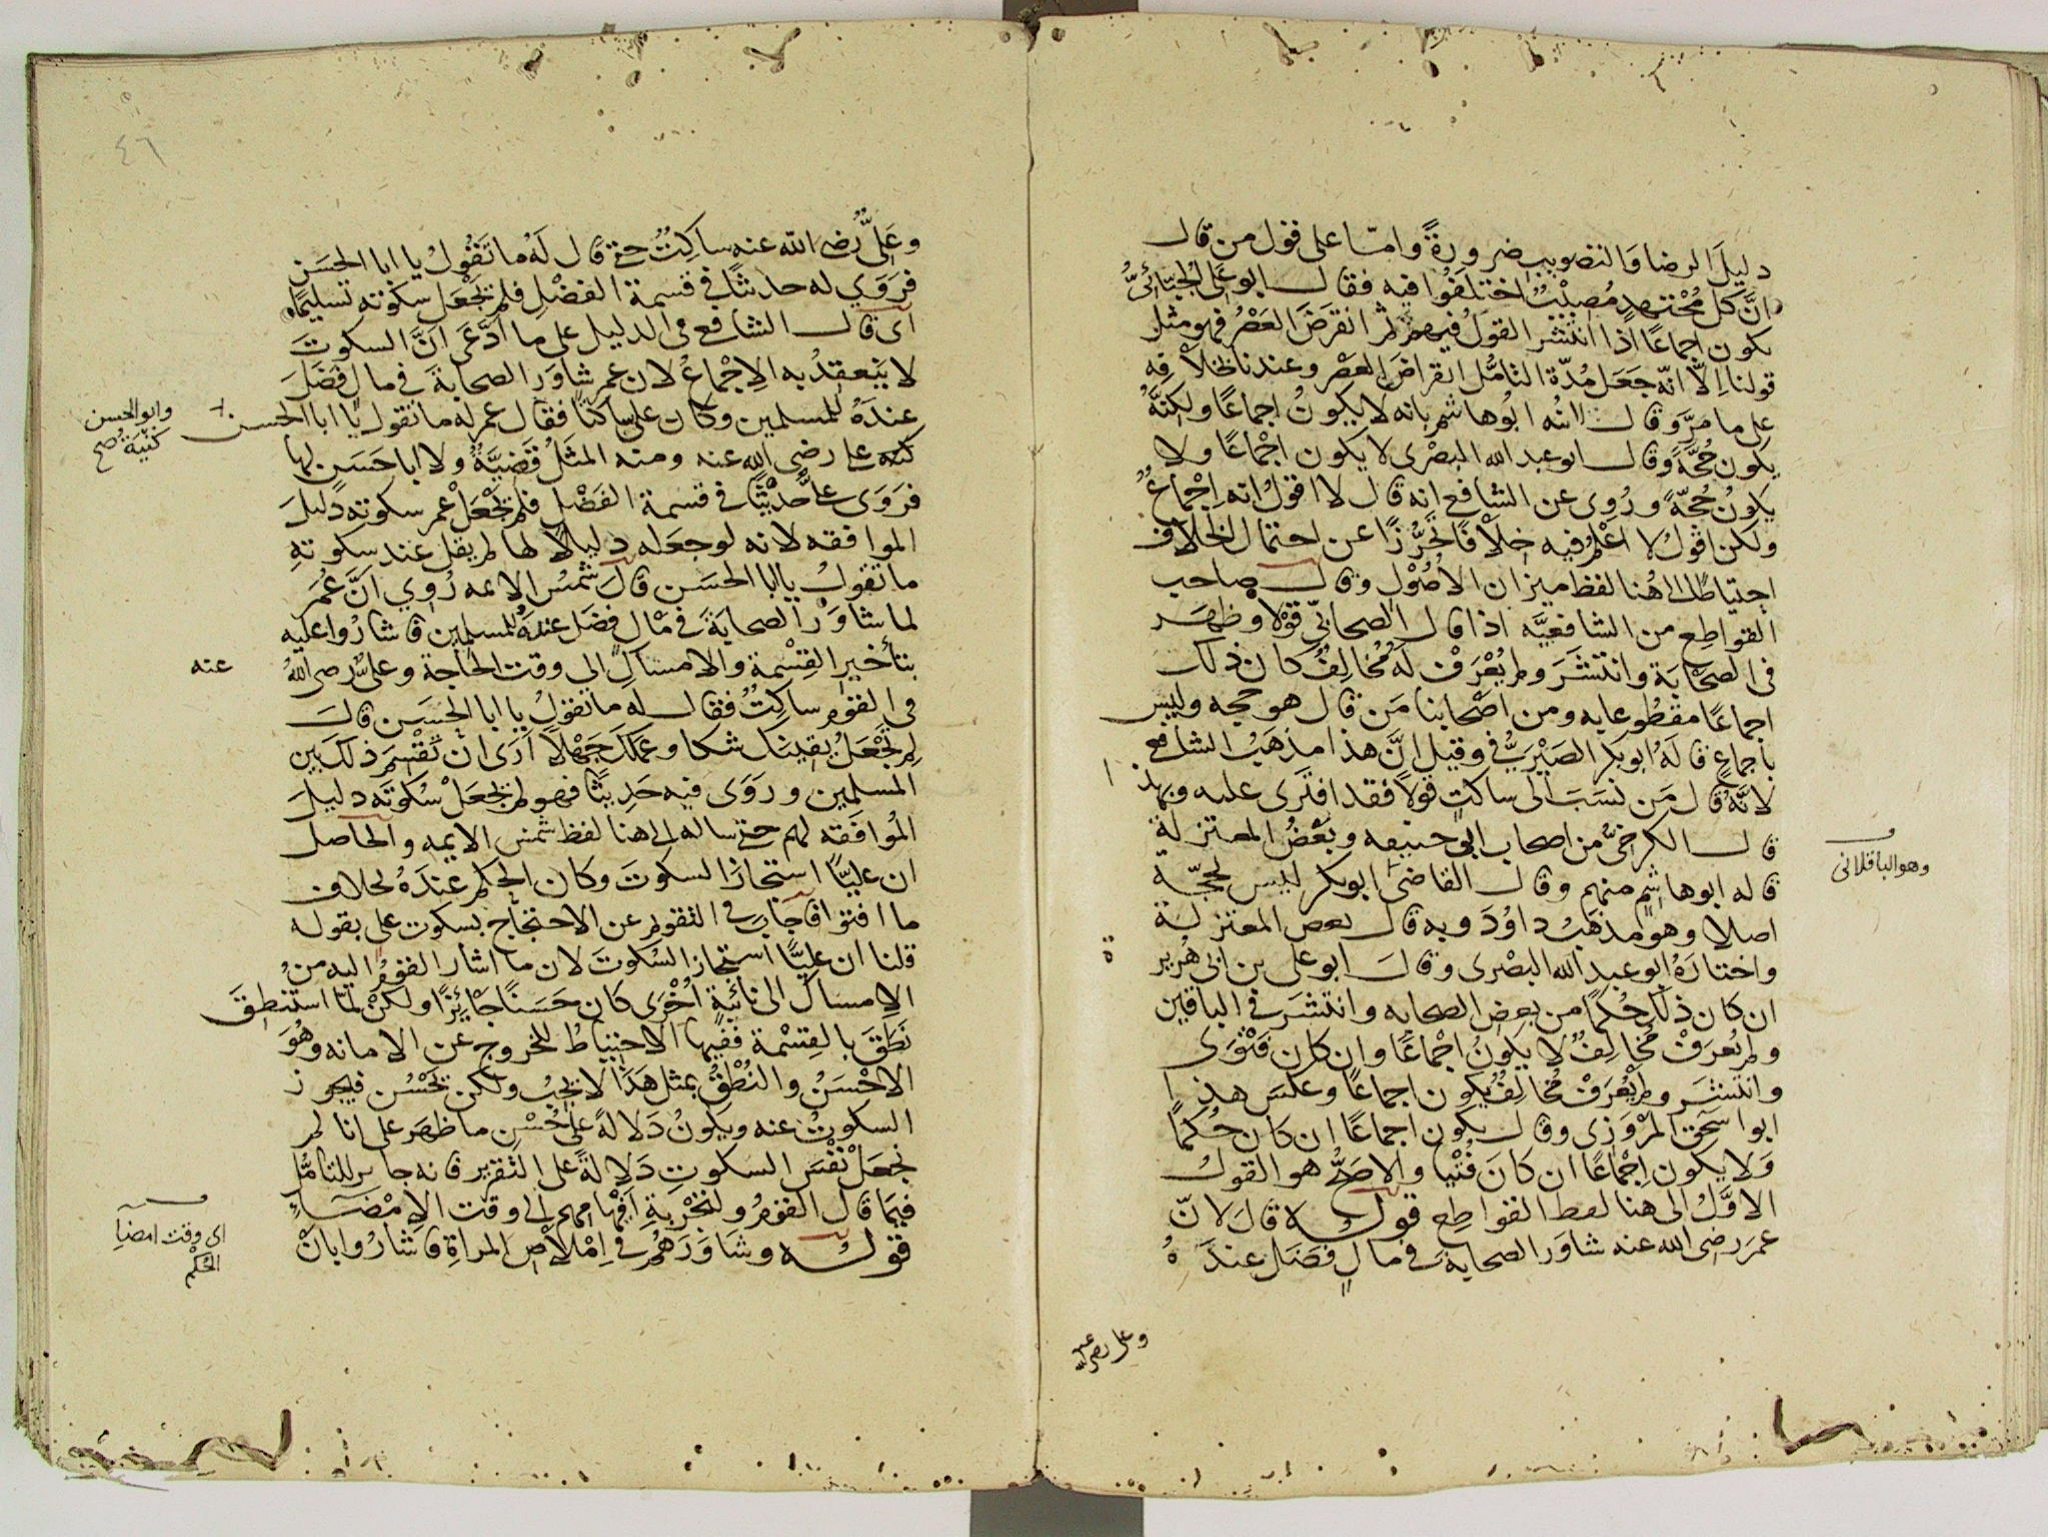 دليلَ الرضا وَالتصويبِ ضرورةً وامّا على قول من قال
انَّ كلَّ مُجْتهدٍ مُصِيْبٌ اختلفُوا فيه فقال ابو على الجبّائىُّ
يكون اجماعًا اذا انتشر القولُ فيهم ثم انقرضَ العَصْرُ فهو مثل
قولنا اِلّا انّه جَعَل مُدّة التامُّل انقراضَ العصْر وعندنا بخلافه
على ما مرَّ وقال ابنُه ابُو هاشم بانه لا يكونُ اجماعًا ولكنّهُ
يكون حُجّةً وقال ابو عبد الله البصْرى لا يكون اجْماعًا ولا
يكونُ حُجّةً ورُوى عن الشافعى انه قال لا اقولُ انه اِجْماعٌ
ولكن اقولُ لا اَعْلمُ فيه خِلاْفًا تحرُّزًا عن احتمال الخلاف
احتياطًا الى هُنا لفظ ميزان الاُصُوْل وقال صاحب
القواطِع من الشافعيّه اذا قال الصحابىّ قوْلا وظهَر
فى الصحابَة وانتشَرَ ولم يُعْرَفْ لهُ مُخالِفٌ كان ذلك
اجماعًا مقطوعا به ومن اصْحابنا مَن قال هو حجه وليس
باجماعٍ قالهُ ابو بكر الصَيْرَفىُّ وقيل انَّ هذا مذهَبُ الشافعى
لانّهُ قال مَن نسَبَ الَى ساكتٍ قولاً فقد افترى عليه وبهذا
قال الكرخىُّ من اصحاب ابى حنيفه وبَعْضُ المعتزلة
قاله ابو هاشم منهم وقال القاضى ابو بكر ليس بحجّة
اصلا وهو مذهَبُ داوُدَ وبه قال بعض المعتزلة
واختارَهُ ابو عبد الله البصْرى وقال ابو على بن ابى هُريرة
ان كان ذلك حُكمًا من بعض الصحابه وانتشَرَ فى الباقين
ولم يُعرَفْ مُخالِفٌ لا يكونُ اجْماعًا وان كان فتْوَى
وانتشَر ولم يُعْرَفْ مُخالِفٌ يكون اجماعًا وعكسَ هذا
ابو اسحق المرْوَزى وقال يكون اجماعًا اِن كان حُكمًا
وَلا يكون اِجْماعًا ان كانَ فُتْيا والاصَحُّ هو القولُ
الاوَّلُ الى هنا لفظ القواطِع قوله قالَ لانّ
عمرَ رضى الله عنه شاوَر الصحابَة فى مالٍ فضَل عندَهُ
وهو الباقلانى
وعلى رضى الله عنه
٤٦
وعَلىٌّ رُضى الله عنه ساكِتٌ حتى قال لَهُ ما تَقُولُ يا ابا الحسَن
فرَوَي له حديثًا فى قسمة الفضْل فلم يَجْعَل سكوته تسليمًا
اى قال الشافعى فى الدليل على ما ادّعَى انَّ السكوتَ
لا يَنْعقِدُ به الاِجْماعُ لان عمر شاوَر الصحابةَ فى مال فضَلَ
عندَهُ للمسلمين وكان على ساكتًا فقال عمر له ما تقول يا ابا الحسن
كنيه على رضى الله عنه ومنه المثَلُ قضِيّةٌ ولا ابا حَسَن لها
فرَوَى على حديْثًا فى قسمة الفَضْل فلم يَجْعَلْ عُمر سكوته دليلَ
الموافقه لانه لو جعَله دليلاً لها لم يقل عند سكوتهِ
ما تقولُ يا ابا الحسَن قالَ شمْسُ الايمه رُوي اَنَّ عُمَر
لما شاوَرَ الصحابةَ فى مْالٍ فضَل عندهُ للمسلمين فاشارُوا عليه
بتأخير القِسْمة والامساكِ الى وقت الحاجة وعلىٌّ رضى اللهُ
عنه
في القوم ساكِتٌ فقال له ما تقولُ يا ابا الحسَن قال
لِم تَجْعَلُ يقينَك شكا وعلمكَ جَهْلًا ارَى ان تُقْسِمَ ذلكَ بين
المسلمين ورَوَى فيه حَدِيثًا فهو لم يجْعَلْ سُكوتَه دليلَ
المُوافقه لهم حتى ساله الى هنا لفظ شمْس الايمه والحاصل
ان عليًّا استجازَ السكوتَ وكان الحكم عندَهُ بخلاف
ما افتوا فاجَابَ فى التقويم عن الاحتجاج بسكوت على بقوله
قلنا ان عليًّا استجاز السُكوتَ لان ما اشار القومُ اليه منُ
الامساك الى نائبةٍ اُخْرَى كان حَسَنًا جْائِزًا ولكنْ لمّا استنطِقَ
نَطَقَ بالقِسْمة ففيها الاحتياطُ للخروج عن الامانه وهُوَ
الاحْسَنُ والنُطْقُ بمثل هَذا لا يجبُ ولكن يحْسُن فيجوز
السكوتُ عنه ويكونُ دَلالةً على حُسْنِ ما ظهَر على انا لم
نجعَلْ نفْسَ السكوتِ دَلالةً على التقرير فانه جائز للتامُّل
فيما قال القومُ ولتجْربَةِ اَفهامِهم الى وقت الاِمْضَاءِ
قوله وشَاوَرَهُم فى اِمْلاصِ المراةِ فاشارُوا بانْ
وابو الحسن
كنْيَةٌ صح
اى وقت امضاء
الحُكْم